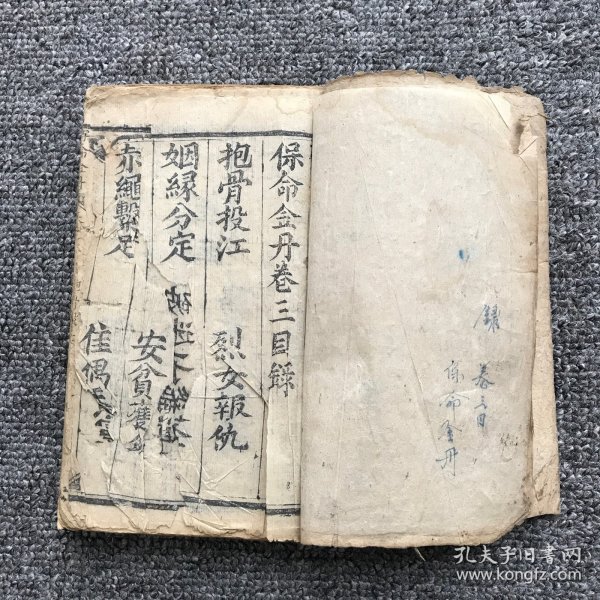 保命金丹卷三目錄
抱骨投江 烈女報仇
姻緣分定 安貧
赤繩繫足 佳偶
錄
卷三目
保命金丹
孔夫子旧书网
www.kongfz.com